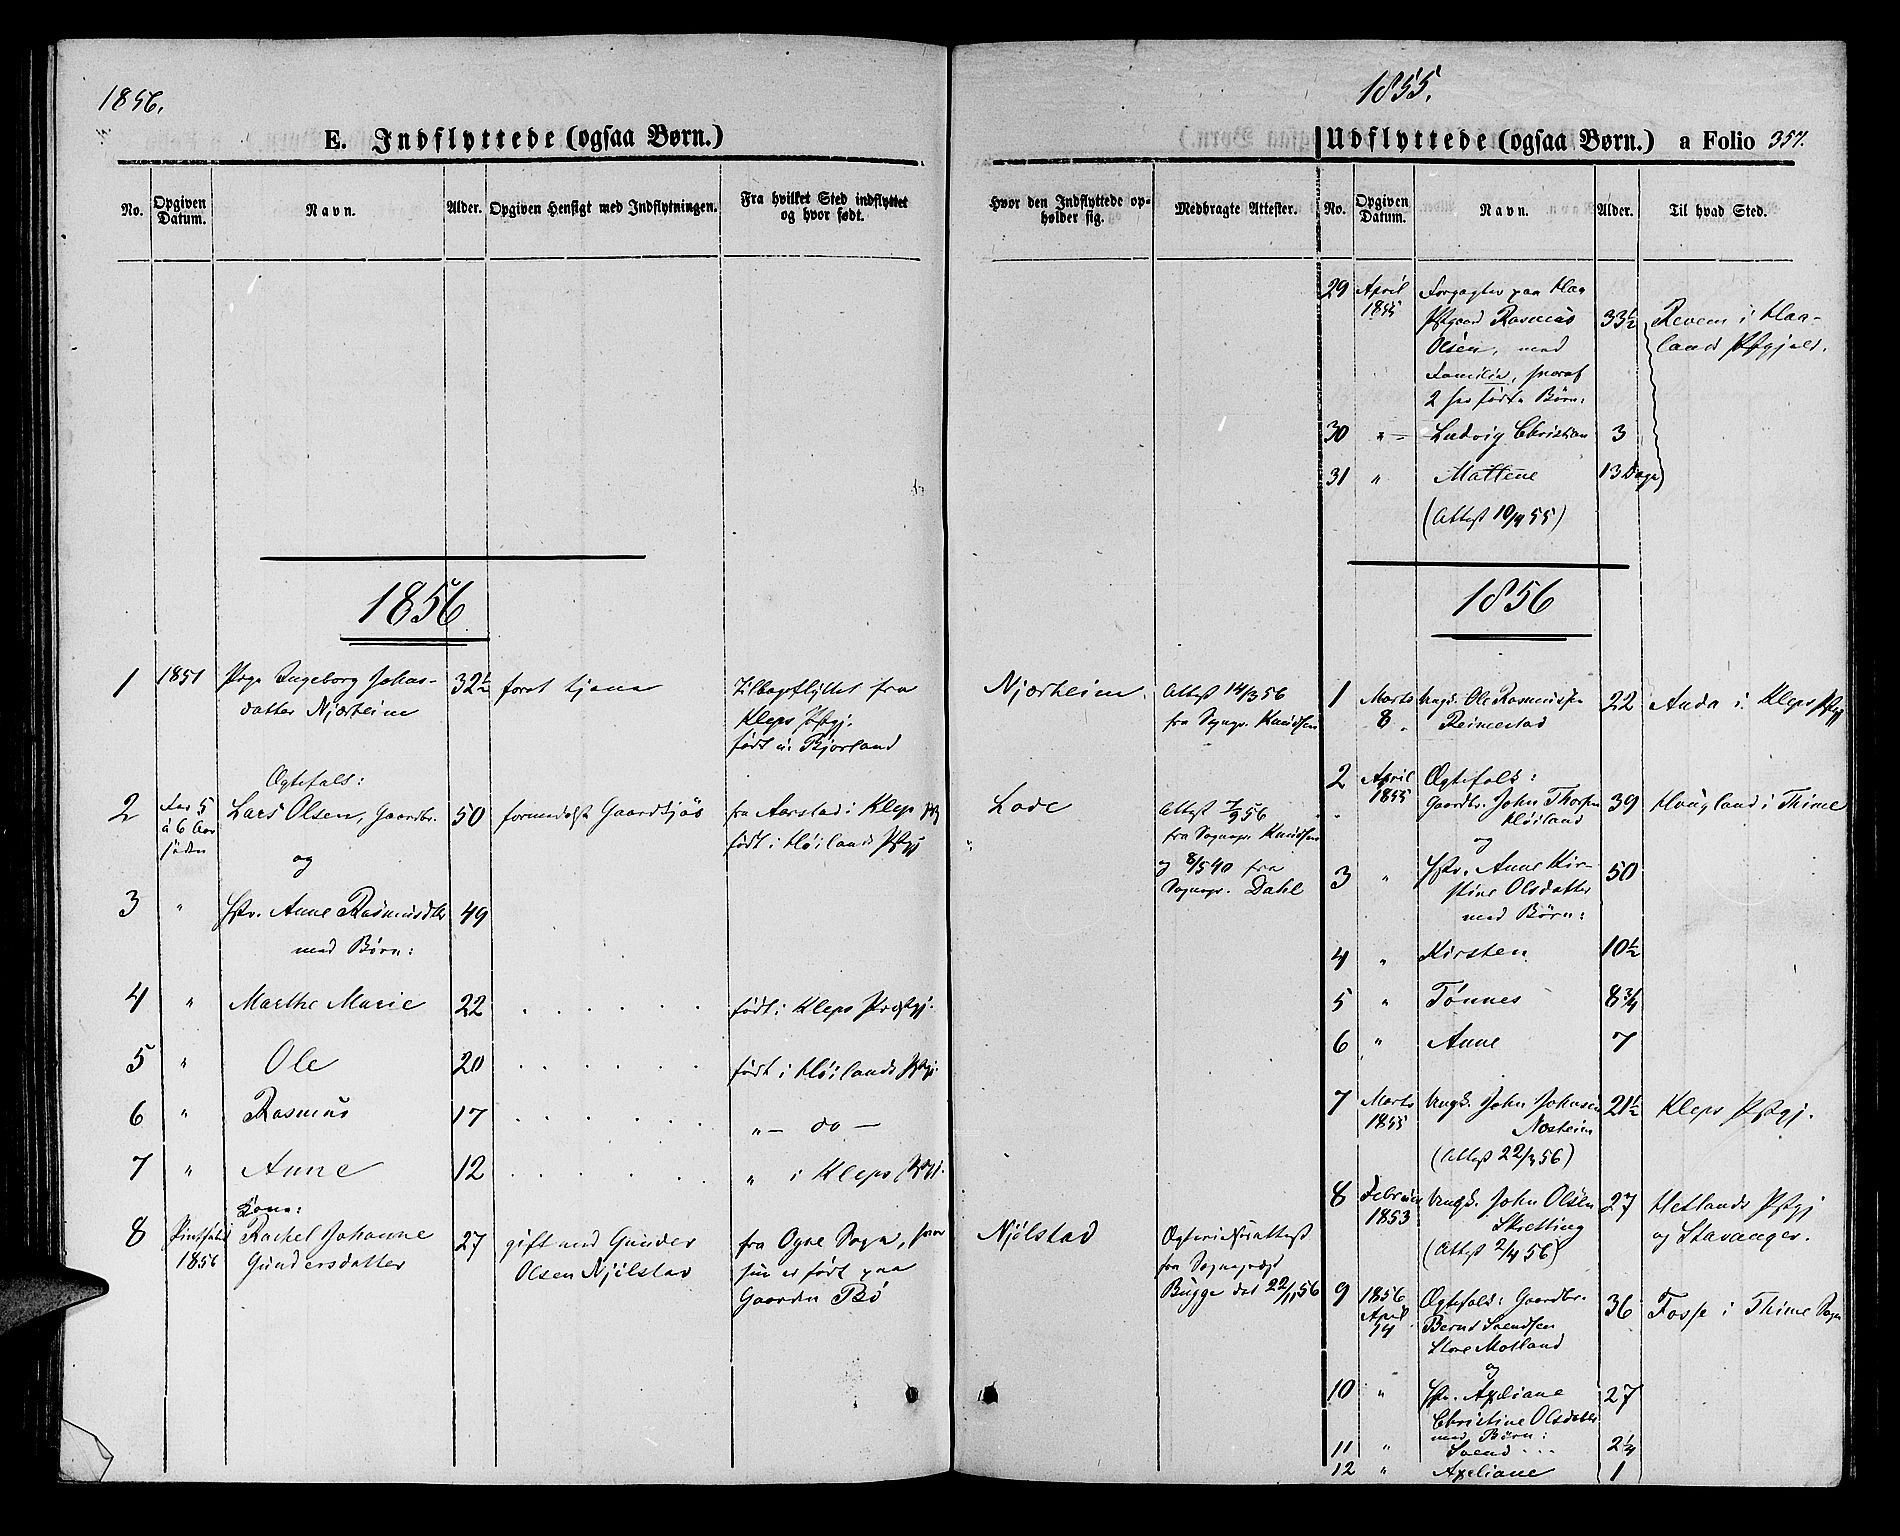 1856.
E. Indflyttede (ogsaa Børn.)
No.
Opgiven Datum.
Navn.
Alder.
Opgiven Hensigt med Indflytningen.
Fra hvilket Sted indflyttet og hvor født.
Hvor den Indflyttede opholder sig.
Medbragte Attester.
1856
1 1851 Pige Ingeborg Johns- 32½ foret tjene Tilbageflyttet fra Njærheim Attest 14/3 56
datter Njærheim Kleps Pstgj. fra Sognepr. Knudsen
født i Bjorland
Ægtefolk:
2 for 5 Lars Olsen, Gaardbr. 50 formedelst Gaardkjøb fra Aarstad i Klep Pstgj Lode Attest 7/9 56
à 6 Aar født i Høilands Pstgj fra Sognepr. Knudsen
siden og og 8/5 40 fra
Sognepr. Dahl
3 " Hstr. Anne Rasmusdtr 49
med Børn:
4 " Marthe Marie 22 født i Kleps Præstgj.
5 " Ole 20 født i Høilands Pstgj.
6 " Rasmus 17 " — do —
7 " Anne 12 " i Kleps Pstgj.
Kone:
8 1856 Rachel Johanne 27 gift med Gunder fra Ogne Sogn, hvor Njølstad
Gundersdatter Olsen Njølstad hun er født paa fra Sognepræst
Gaarden Bø Bugge dat 22/11 56
1855.
Udflyttede (ogsaa Børn.) a Folio 357.
No.
Opgiven Datum.
Navn.
Alder.
Til hvad Sted.
29 April Forpagter paa Haa
1855 Pstgaard Rasmus 33½ Revem i Haa-
Olsen, med land Pstgjeld.
Familie, hvoraf
2 her fødte Børn:
30 " — Ludvig Christian 3
31 " Mattene 13 Dage
(Attest 10/4 55)
1856
1 Marts Ungk. Ole Rasmussen 22 Anda i Kleps Pstgj
8 Reimestad
2 April Ægtefolk:
1855 Gaardbr. John Thorsen 39 Haugland i Thime
Høiland
og
3 " Hstr. Anne Kir- 50
stine Olsdatter
med Børn:
4 " Kirsten 10½
5 " Tønnes 8¾
6 " Anne 7
7 Marts Ungk. John Johnsen 21½ Kleps Pstgj.
1855 Nærheim
(Attest 22/3 56)
8 Februar Ungk. John Olsen 27 Hetlands Pstgj
1853 Skretting og Stavanger.
(Attest 2/4 56)
9 1856 Ægtefolk: Gaardbr. 36 Fosse i Thime Sogn
April Bernt Svendsen
14 Store Motland
og
10 " Hstr. Axeliane 27
Christine Olsdatter
med Børn:
11 " Svend 2¼
12 " Axeliane 1